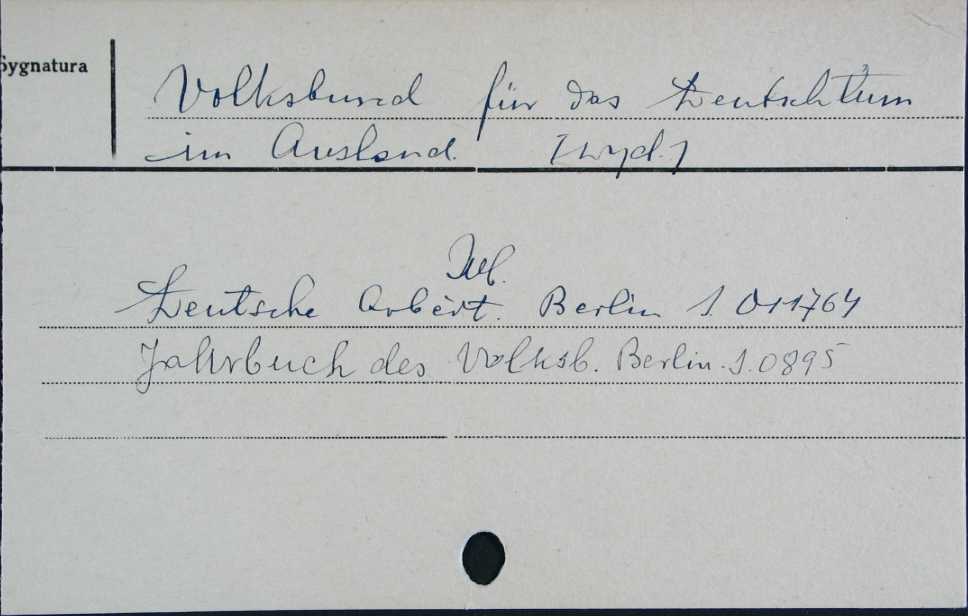 Sygnatura
Volksbund für das Deutschtum
im Ausland. [wyd.]
Deutsche Arbeit. Berlin S. 011764
Jahrbuch des Volksb. Berlin. S. 0895